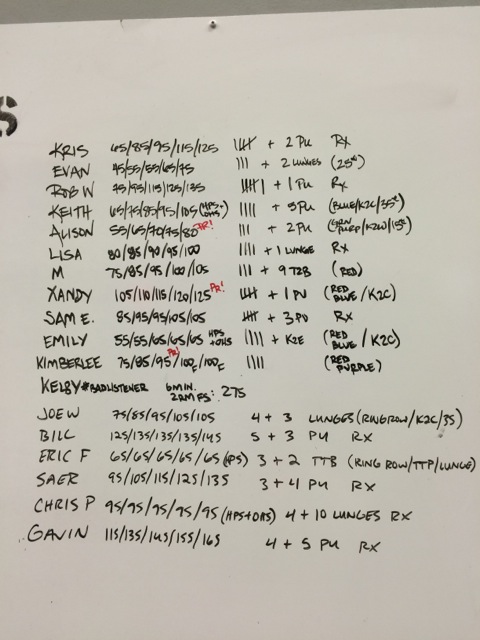 S
KRIS 65/85/95/115/125 |||| + 2 PU RX
EVAN 45/55/55/65/75 ||| + 2 LUNGES (25#)
ROB W 75/95/115/125/135 |||| | + 1 PU RX
KEITH 65/75/85/95/105 (HPS+OHS) |||| + 5 PU (BLUE/K2C/35#)
ALISON 55/65/70/75/80 PR! ||| + 2 PU (GRN/PURP/K2W/15#)
LISA 80/85/90/95/100 |||| + 1 LUNGE RX
M 75/85/95/100/105 ||| + 9 T2B (RED)
XANDY 105/110/115/120/125 PR! |||| + 1 PU (RED BLUE/K2C)
SAM E. 85/95/95/105/105 |||| + 3 PU RX
EMILY 55/55/65/65/65 HPS +OHS |||| + K2E (RED BLUE/K2C)
KIMBERLEE 75/85/95 PR!/100c/100c |||| (RED PURPLE)
KELBY #BADLISTENER 6 MIN. 2RM FS: 275
JOE W 75/85/95/105/105 4 + 3 LUNGES (RINGROW/K2C/35)
BILL 125/135/135/135/145 5 + 3 PU RX
ERIC F 65/65/65/65/65 (HPS) 3 + 2 TTB (RING ROW/TTP/LUNGE)
SAER 95/105/115/125/135 3 + 4 PU RX
CHRIS P 95/95/95/95/95 (HPS+OHS) 4 + 10 LUNGES RX
GAVIN 115/135/145/155/165 4 + 5 PU RX